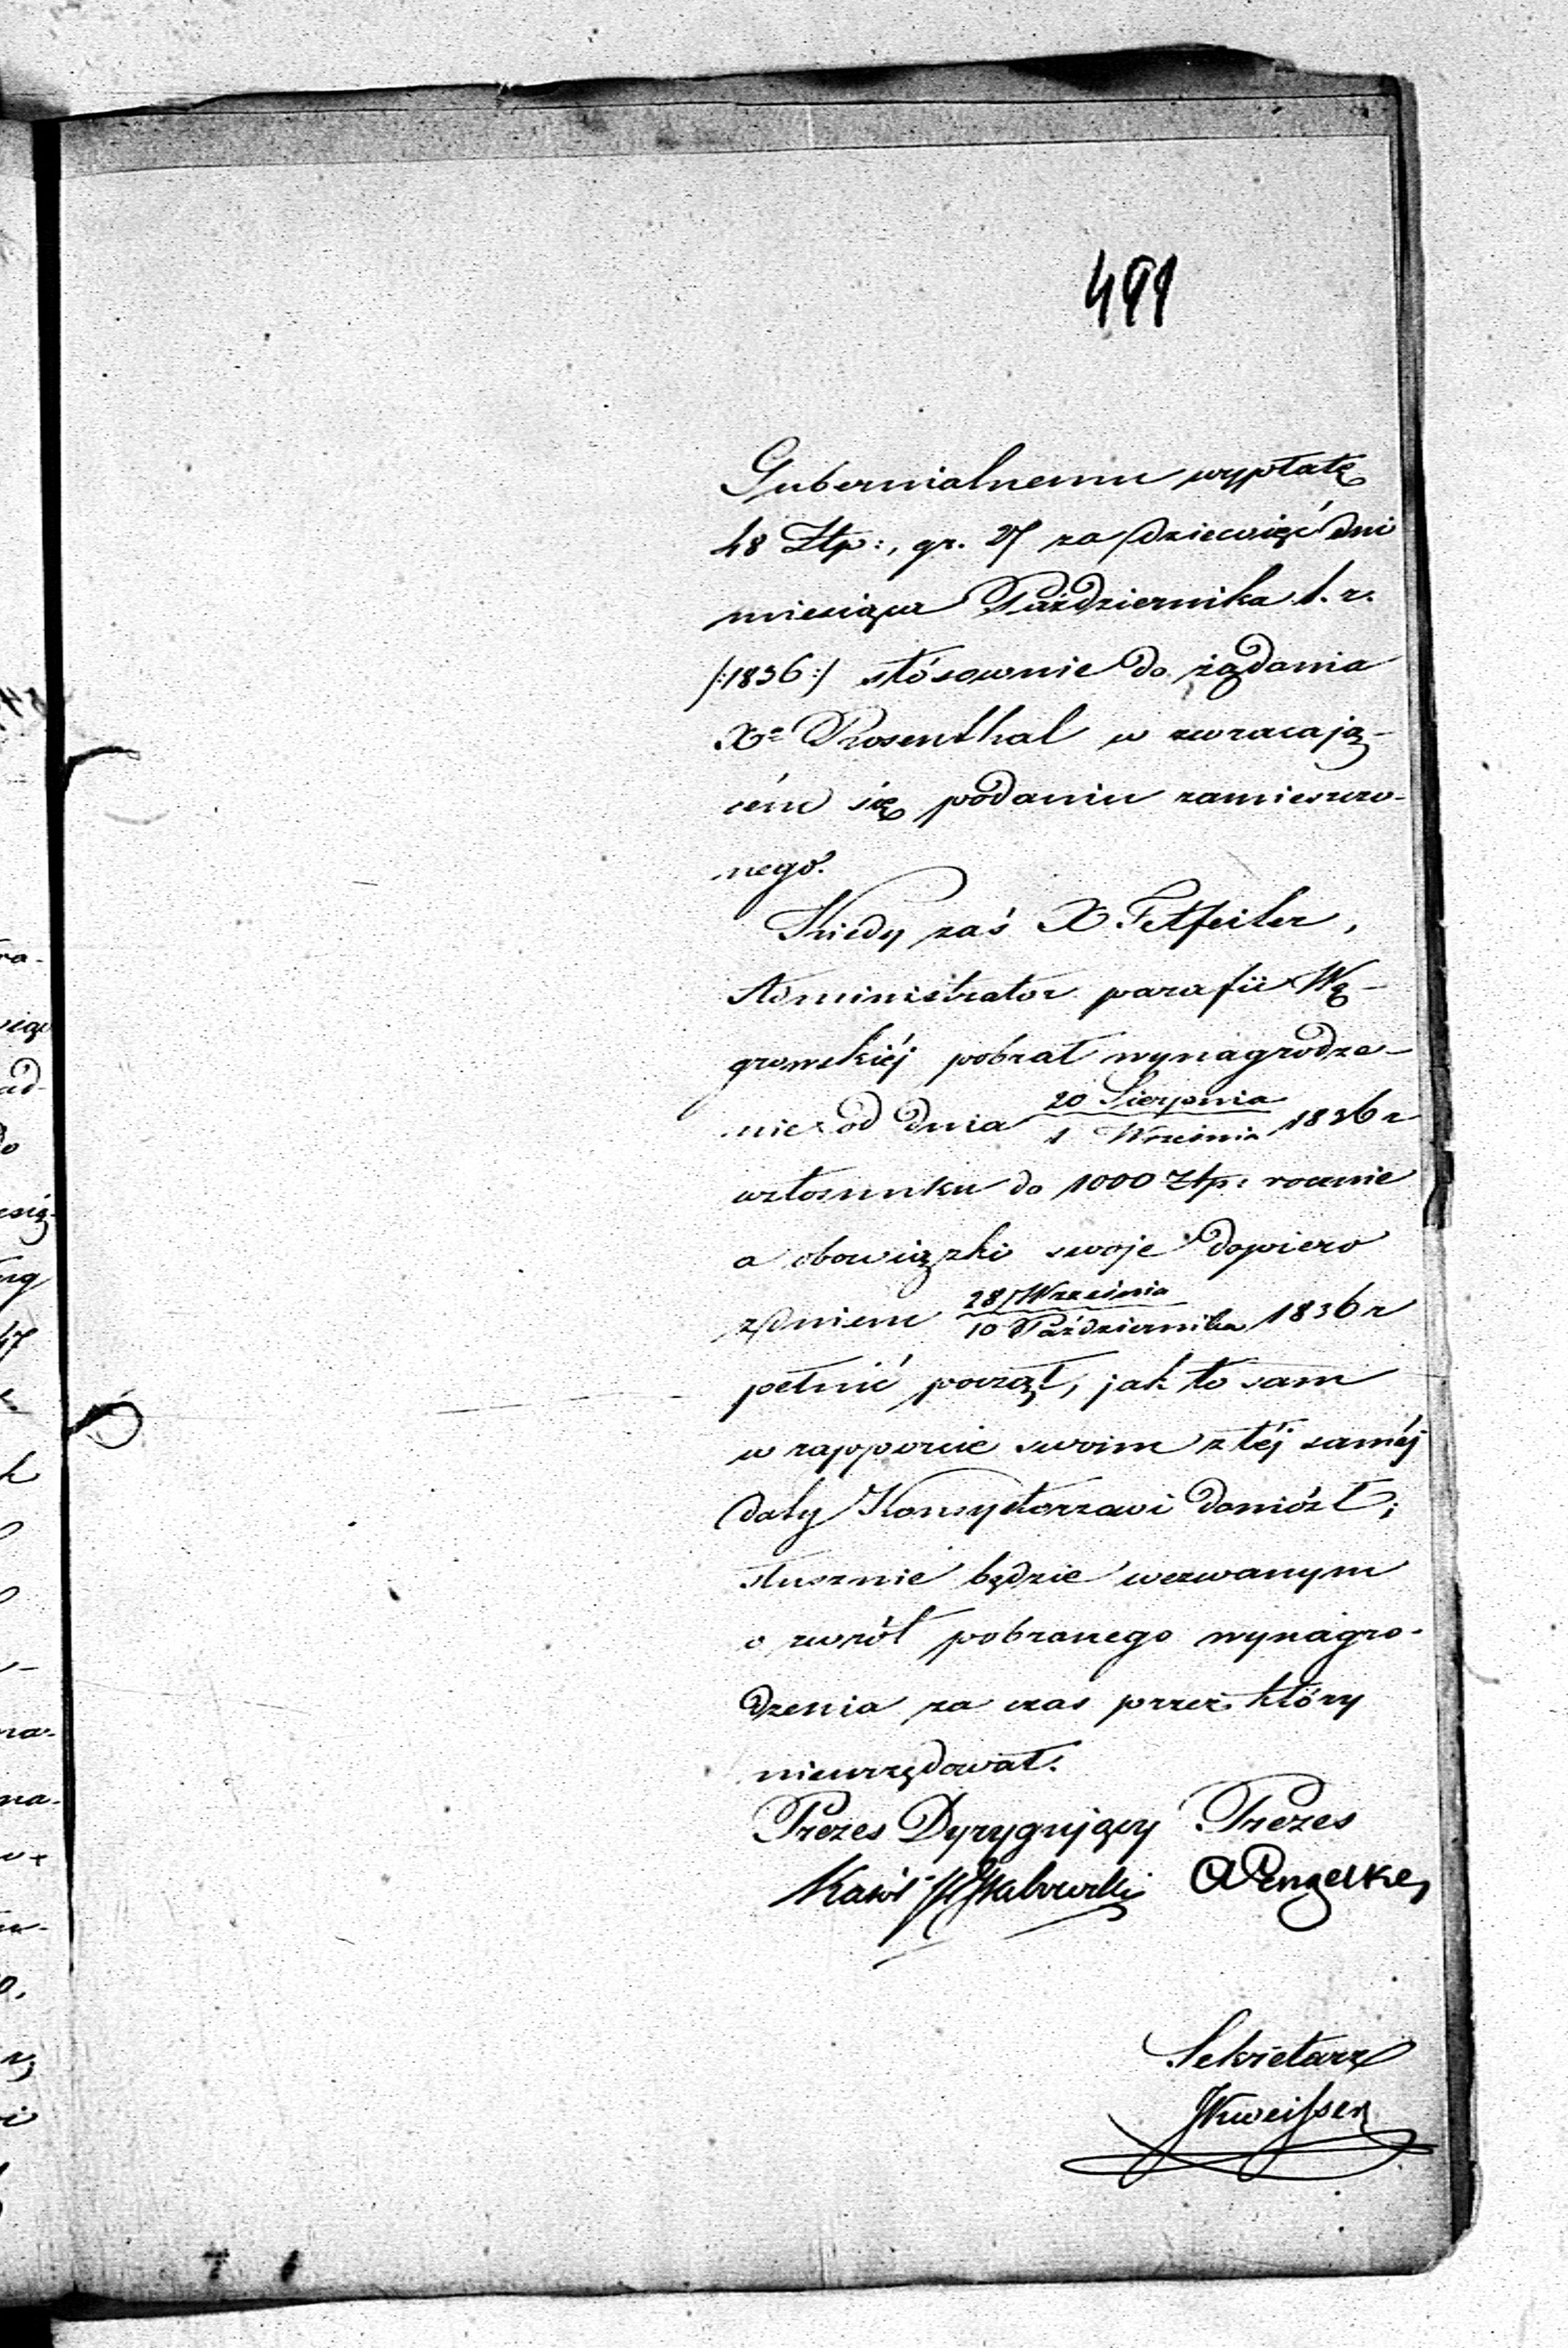 491
Gubernialnemu wypłatę
48 Złp:, gr. 27 za dziewięć dni
miesiąca Października b. r.
/:1836:/ stósownie do żądania
Xa Rosenthal w zwracają-
cém się podaniu zamieszczo-
nego.
Kiedy zaś X Tetfeiler,
Administrator parafii Wę-
growskiéj pobrał wynagrodze-
nie od dnia 20 Sierpnia / 1 Września 1836 r
wstosunku do 1000 Złp: rocznie
a obowiązki swoje dopiero
z dniem 28 Września / 10 Października 1836 r
pełnić począł, jak to sam
w rapporcie swoim z téj saméj
daty Konsystorzowi doniósł;
słusznie będzie wezwanym
o zwrót pobranego wynagro-
dzenia za czas przez który
nieurzędował.
Prezes Dyrygujący Prezes
Engelke
Sekretarz